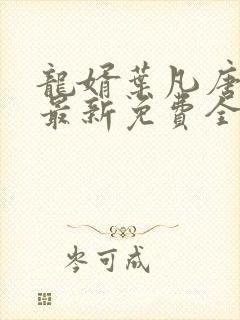 龍婿葉凡唐
最新免費全
岑可成